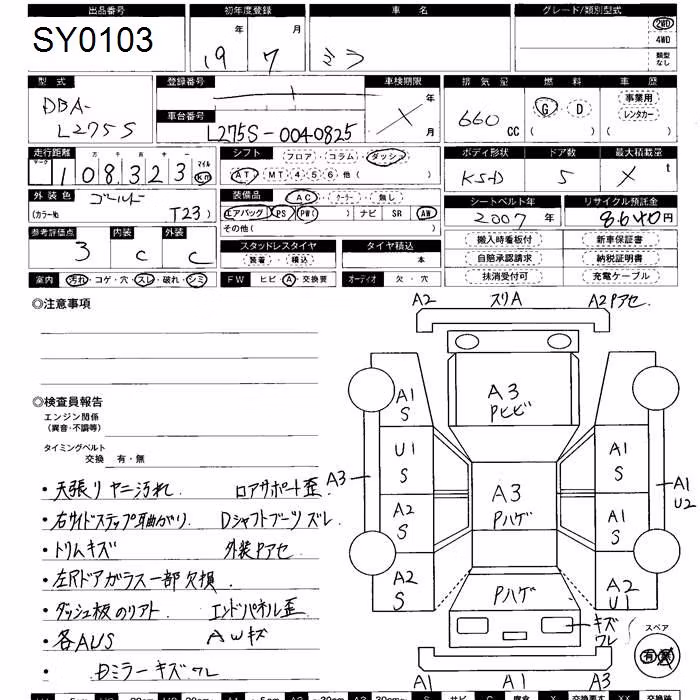 出品番号 初年度登録 車名 グレード/類別型式
SY0103 19年 7月 ミラ 2WD 4WD 類型なし
型式 登録番号 車検期限 排気量 燃料 車歴
DBA-L275S × 年 月 660cc G・D ( ) 事業用 レンタカー ( )
車台番号 L275S-0040825
走行距離 シフト フロア・コラム・ダッシュ ボディ形状 ドア数 最大積載量
マーク 十万千百十一 マイル
108323 km AT・MT・4・5・6・他( ) 5 × t
外装色 ゴールド 装備品 AC・クーラー・無し シートベルト年 リサイクル預託金
(カラーNo. T23) エアバッグ PS PW( ) ナビ SR AW 2007年 8640円
その他( )
参考評価点 内装 外装 スタッドレスタイヤ タイヤ積込 搬入時看板付 新車保証書
3 C C 装着・積込 本 自賠承認請求 納税証明書
室内 汚れ・コゲ・穴・スレ・破れ・シミ FW ヒビ・A・交換要 オーディオ 欠・穴 抹消受付可 充電ケーブル
◎注意事項
A2 スリA A2Pアセ
◎検査員報告
エンジン関係
(異音・不調等)
タイミングベルト
交換 有・無
・天張りヤニ汚れ ロアサポート歪
・右サイドステップ耳曲がり Dシャフトブーツズレ
・トリムキズ 外装Pアセ
・左Rドアガラス一部欠損
・ダッシュ板のリアト エンドパネル歪
・各AUS AWキズ
・Dミラーキズワレ
A1
S
A3
Pヒビ
U1
S
A1
S
A3
A3
Pハゲ
A1
U2
A2
S
A1
S
A2
S
Pハゲ
A2
U1
キズ
ワレ
スペア
有・無
A1 A1 A3